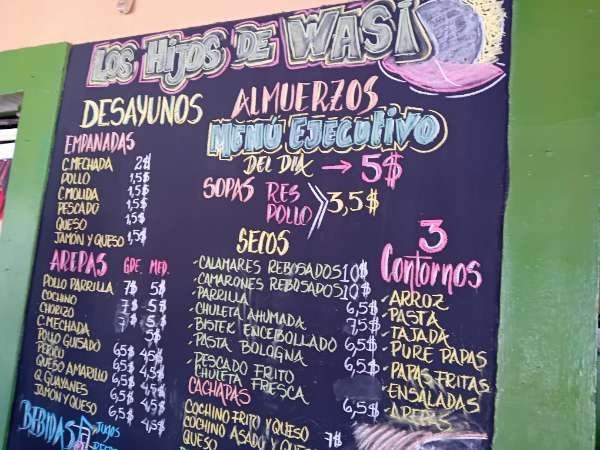 LOS HIJOS DE WASI
DESAYUNOS
EMPANADAS
C.MECHADA 2$
POLLO 1,5$
C.MOLIDA 1,5$
PESCADO 1,5$
QUESO
JAMÓN Y QUESO 1,5$
AREPAS GDE. MED.
POLLO PARRILLA 7$ 5$
COCHINO
CHORIZO 7$ 5$
C.MECHADA 7$ 5$
POLLO GUISADO 5$
PERICO 6,5$ 4,5$
QUESO AMARILLO 6,5$ 4,5$
Q. GUAYANES 6,5$ 4,5$
JAMÓN Y QUESO 6,5$ 4,5$
6,5$ 4,5$
BEBIDAS
JUGOS
ALMUERZOS
MENÚ EJECUTIVO
DEL DIA → 5$
SOPAS RES
POLLO 3,5$
SECOS
-CALAMARES REBOSADOS 10$
-CAMARONES REBOSADOS 10$
-PARRILLA 6,5$
-CHULETA AHUMADA 7,5$
-BISTEK ENCEBOLLADO 6,5$
-PASTA BOLOGNA
-PESCADO FRITO
-CHULETA FRESCA 6,5$
CACHAPAS
COCHINO FRITO Y QUESO 7$
COCHINO ASADO Y QUESO
QUESO
3
Contornos
-ARROZ
-PASTA
-TAJADA
-PURE PAPAS
-PAPAS FRITAS
-ENSALADAS
-AREPAS